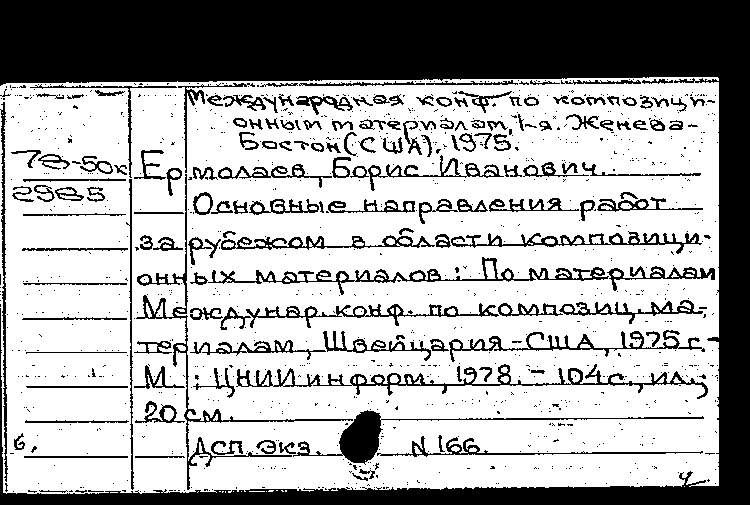 Международная конф. по композици-
онным материалам, 1-я. Женева-
Бостон (США), 1975.
78-50к
2985
Ермолаев, Борис Иванович.
Основные направления работ
за рубежом в области композици-
онных материалов: По материалам
Междунар. конф. по композиц. ма-
териалам, Швейцария-США, 1975 г.-
М.: ЦНИИинформ., 1978. - 104 с., ил.;
20 см.
б.
Дсп. экз. N 166.